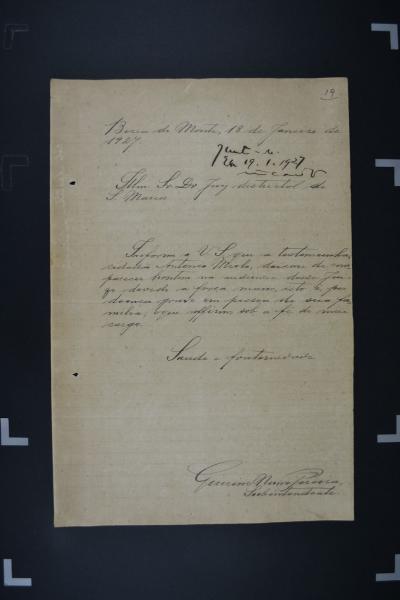 19
Bocca do Monte, 18 de Janeiro de
1927
Junte-se
Em 19.1.1927
Illm. Sr. Dr. Juiz districtal de
S. Maria
Informo a V. S. que a testemunha
Antonio deixou de com
parecer hontem na audiencia desse Jui
zo devido a força maior, isto é, por
doença grave em pessoa de sua fa
milia, o que affirmo sob a fé de meu
cargo.
Saude e fraternidade
Pereira
Subintendente